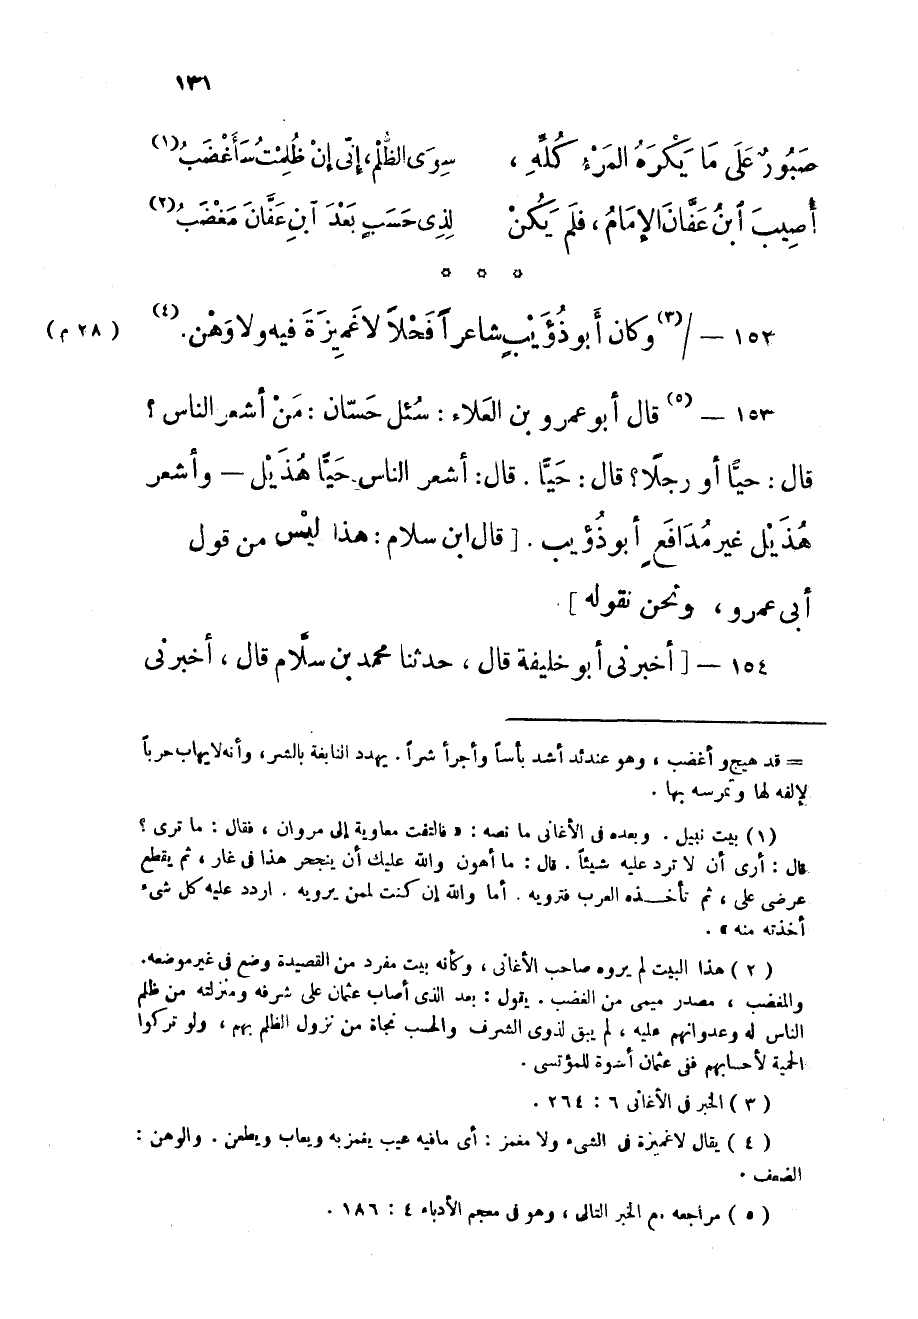 ١٣١
صَبُورٌ عَلَى مَا يَكْرَهُ المَرْءُ كُلِّهِ ، سِوَى الظُّلْمِ، إِنِّى إِنْ ظُلِمْتُ سَأَغْضَبُ(١)
أُصِيبَ ٱبنُ عَفَّانَ الإِمَامُ، فلَم يَكُنْ لِذِى حَسَبٍ بَعْدَ ٱبنِ عَفَّانَ مَغْضَبُ(٢)
۞ ۞ ۞
١٥٢ — /(٣) وكان أَبو ذُؤَيْبٍ شاعراً فَحْلاً لاغَمِيزَةَ فيه ولا وَهْن.(٤) ( ٢٨ م )
١٥٣ — (٥) قال أبو عمرو بن العَلاء : سُئل حَسّان : مَنْ أشعر الناس ؟
قال : حيًّا أو رجلًا؟ قال : حَيًّا . قال: أشعر الناس حَيًّا هُذَيْل — وأشعر
هُذَيْل غير مُدَافَعٍ أبو ذُؤيب . [ قال ابن سلام : هذا ليْس من قول
أبى عمرو ، ونحن نقوله ] .
١٥٤ — [ أخبرنى أبو خليفة قال ، حدثنا محمد بن سلَّام قال ، أخبرنى
= قد هيج و أغضب ، وهو عندئذ أشد بأساً وأجرأ شراً . يهدد النابغة بالشر، وأنه لا يهاب حرباً
لإلفه لها وتمرسه بها .
(١) بيت نبيل . وبعده فى الأغانى ما نصه : « فالتفت معاوية إلى مروان ، فقال : ما ترى ؟
قال : أرى أن لا ترد عليه شيئاً . قال : ما أهون والله عليك أن ينجحر هذا فى غار ، ثم يقطع
عرضى على ، ثم تأخـــذه العرب فترويه . أما والله إن كنت لممن يرويه . اردد عليه كل شىء
أخذته منه » .
( ٢ ) هذا البيت لم يروه صاحب الأغانى ، وكأنه بيت مفرد من القصيدة وضع فى غير موضعه.
والمغضب ، مصدر ميمى من الغضب . يقول : بعد الذى أصاب عثمان على شرفه ومنزلته من ظلم
الناس له وعدوانهم عليه ، لم يبق لذوى الشرف والحسب نجاة من نزول الظلم بهم ، ولو تركوا
الحمية لأحسابهم ففى عثمان أسْوة للمؤتسى .
( ٣ ) الخبر فى الأغانى ٦ : ٢٦٤ .
( ٤ ) يقال لاغميزة فى الشىء ولا مغمز : أى مافيه عيب يغمز به ويعاب ويطعن . والوهن :
الضعف .
( ٥ ) مراجعه م الخبر التالى ، وهو فى معجم الأدباء ٤ : ١٨٦ .